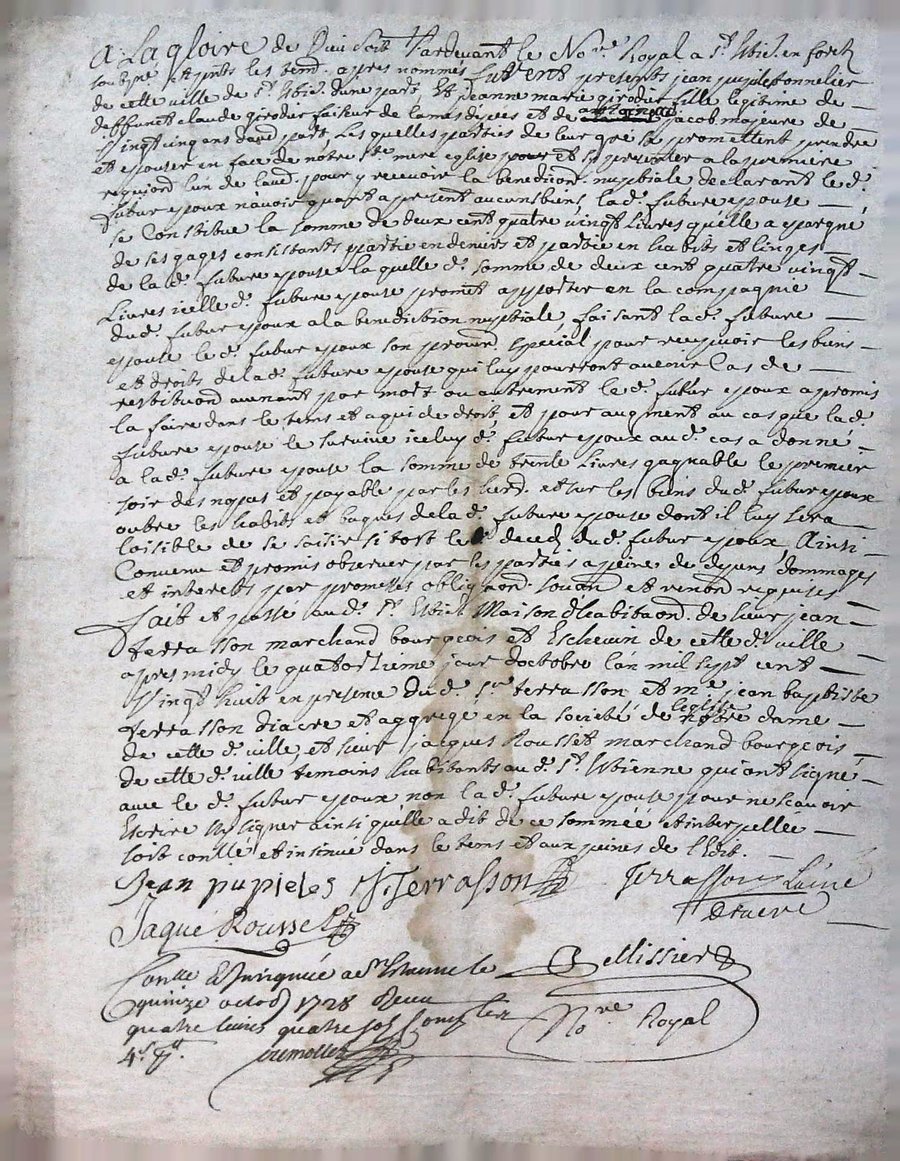 A La gloire de Dieu soit Pardevant le No.re Royal a S.t Etie. en forest
soubsigné Et pnts les tem. apres nommés furent presents jean pupile tonnelier
de cette ville de S.t Etie. d'une part Et jeanne marie girodier fille legitime de
deffunct claude girodier faiseur de lames d'epées et de jacob majeure de
vingt cinq ans d'aud. part, Lesquelles parties de leur gré se promettent prendre
et epouser en face de nôtre Ste mere eglise et s'y presenter a la premiere
requisiord. l'un de l'aud. pour y recevoir la benediciond. nuptiale declarant le d.
futur epoux n'avoir quant a present aucuns biens, la d. future epouse
se Constitue la somme de deux cent quatre vingt Livres qu'elle a epargné
de ses gages consistants partie en deniers et partie en habits et linges
de la d. future epouse la quelle d. somme de deux cent quatre vingt
Livres icelle d. future epouse promet apporter en la compagnie
dud. futur epoux a la benediction nuptiale faisant la d. future
epouse le d. futur epoux son procurd. special pour recepvoir les biens
et droits de la d. future epouse qui luy pourront avenir cas de
restituord avenant par mort ou autrement le d. futur epoux a promis
la faire dans le tems et a qui de droit, et pour augment au cas que la d.
future epouse le survive iceluy d. futur epoux aud. cas a donné
a la d. future epouse la somme de trente Livres gagnable le premier
soir des nopces et payable par les herd. et sur les biens dud. futur epoux
outre les habits et bagues de la d. future epouse dont il luy sera
loisible de se saisir si tost le deced. dud. futur epoux, Ainsi
Convenu et promis observer par les parties a peine de depens, dommages
et interests par promesses obligaord. soumd. et renond requises
fait et passé aud. S.t Etie. Maison d'habituord. de sieur jean
terrasson marchand bourgeois et Eschevin de cette d. ville
apres midy le quatorzieme jour d'octobre l'an mil sept cent
vingt huit en presence dud. sr terrasson et me jean baptiste
terrasson diacre et aggregé en la societé de l'eglise nôtre dame
de cette d. ville, et sieur jacques Rousset marchand bourgeois
de cette d. ville temoins habitants aud. S.t Etienne qui ont signé
avec le d. futur epoux non la d. future epouse pour ne scavoir
Escrire ny signer ainsi qu'elle a dit de ce sommée et interpellée
soit conllé et insinué dans le tems et aux peines de l'edit.
Jean pupieles J Terrasson Terrasson Lainé
diacre
Jaque Rousset
Conllé Et insinué a St Etienne le Pellissier
quinze octob 1728 Receu
quatre livres quatre sols No.re Royal
4